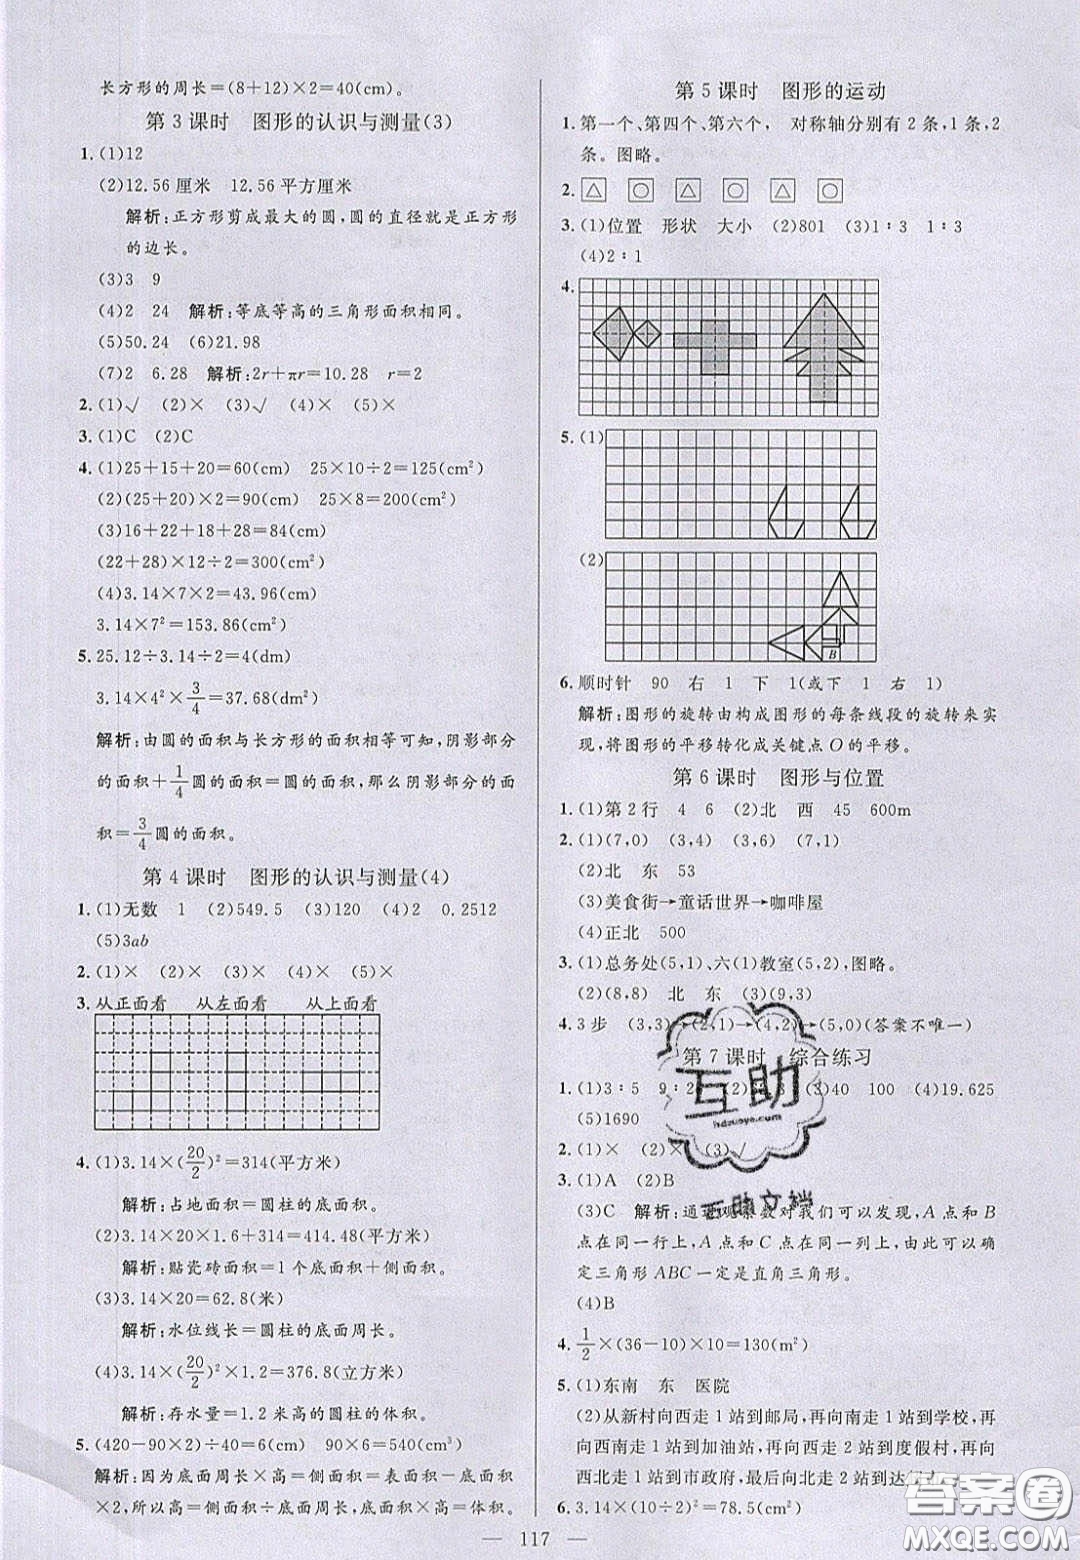 长方形的周长＝(8＋12)×2＝40(cm)。
第 3 课时　图形的认识与测量(3)
1. (1)12
(2)12.56厘米　12.56平方厘米
解析:正方形剪成最大的圆,圆的直径就是正方形
的边长。
(3)3　9
(4)2　24　解析:等底等高的三角形面积相同。
(5)50.24　(6)21.98
(7)2　6.28　解析:2r＋πr＝10.28　r＝2
2. (1)√　(2)×　(3)√　(4)×　(5)×
3. (1)C　(2)C
4. (1)25＋15＋20＝60(cm)　25×10÷2＝125(cm²)
(2)(25＋20)×2＝90(cm)　25×8＝200(cm²)
(3)16＋22＋18＋28＝84(cm)
(22＋28)×12÷2＝300(cm²)
(4)3.14×7×2＝43.96(cm)
3.14×7²＝153.86(cm²)
5. 25.12÷3.14÷2＝4(dm)
3.14×4²×3/4＝37.68(dm²)
解析:由圆的面积与长方形的面积相等可知,阴影部分
的面积＋1/4圆的面积＝圆的面积,那么阴影部分的面
积＝3/4圆的面积。
第 4 课时　图形的认识与测量(4)
1. (1)无数　1　(2)549.5　(3)120　(4)2　0.2512
(5)3ab
2. (1)×　(2)×　(3)×　(4)×　(5)×
3. 从正面看　从左面看　从上面看
4. (1)3.14×(20/2)²＝314(平方米)
解析:占地面积＝圆柱的底面积。
(2)3.14×20×1.6＋314＝414.48(平方米)
解析:贴瓷砖面积＝1个底面积＋侧面积。
(3)3.14×20＝62.8(米)
解析:水位线长＝圆柱的底面周长。
(4)3.14×(20/2)²×1.2＝376.8(立方米)
解析:存水量＝1.2米高的圆柱的体积。
5. (420－90×2)÷40＝6(cm)　90×6＝540(cm³)
解析:因为底面周长×高＝侧面积＝总面积－底面积
×2,所以高＝侧面积÷底面周长,底面积×高＝体积。
第 5 课时　图形的运动
1. 第一个、第四个、第六个,　对称轴分别有2条,1条,2
条。图略。
2. △　○　△　○　△　○
3. (1)位置　形状　大小　(2)801　(3)1∶3　1∶3
(4)2∶1
4.
5. (1)
(2)
B
6. 顺时针　90　右　1　下　1(或下　1　右　1)
解析:图形的旋转由构成图形的每条线段的旋转来实
现,将图形的平移转化成关键点O的平移。
第 6 课时　图形与位置
1. (1)第2行　4　6　(2)北　西　45　600m
2. (1)(7,0)　(3,4)　(3,6)　(7,1)
(2)北　东　53
(3)美食街→童话世界→咖啡屋
(4)正北　500
3. (1)总务处(5,1)、六(1)教室(5,2),图略。
(2)(8,8)　北　东　(3)(9,3)
4. 3步　(3,3)→(2,1)→(4,2)→(5,0)(答案不唯一)
第 7 课时　综合练习
1. (1)3∶5　9∶2　(3)40　100　(4)19.625
(5)1690
2. (1)×　(2)×　(3)√
3. (1)A　(2)B
(3)C　解析:通过观察数对我们可以发现,A点和B
点在同一行上,A点和C点在同一列上,由此可以确
定三角形ABC一定是直角三角形。
(4)B
4. 1/2×(36－10)×10＝130(m²)
5. (1)东南　东　医院
(2)从新村向西走1站到邮局,再向南走1站到学校,再
向西南走1站到加油站,再向西走1站到度假村,再向
西北走1站到市政府,最后向北走2站到达
6. 3.14×(10÷2)²＝78.5(cm²)
117
互助
hdzuoye.com
互助文档
答案圈
MXQE.COM